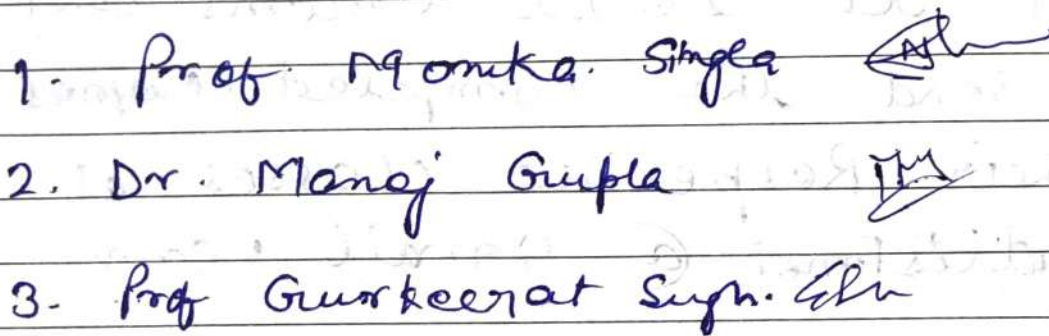 1. Prof. Monika. Singla
2. Dr. Manoj Gupta
3. Prof Gurkeerat Singh.